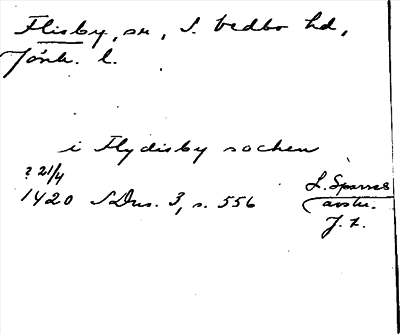 Flisby, sn, S. Vedbo hd,
Jönk. l.
i Flydisby sochen
? 21/4
1420 SDns. 3, s. 556
L. Sparres
avskr.
J. Z.